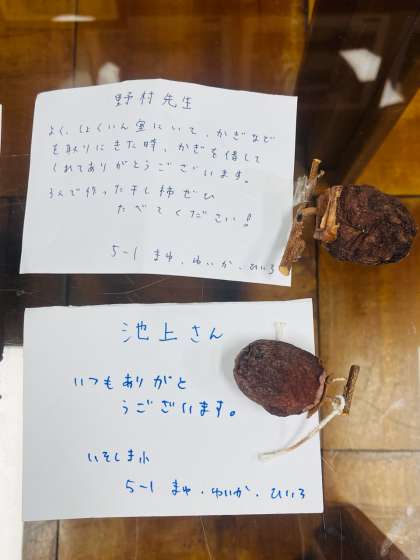 野村先生
よく、しょくいん室にいて、かぎなど
を取りにきた時、かぎを借して
くれてありがとうございます。
3人で作った干し柿ぜひ
たべてください!
5-1 まゆ、ゆいか、ひいろ
池上さん
いつもありがと
うございます。
いそしま小
5-1 まゆ、ゆいか、ひいろ